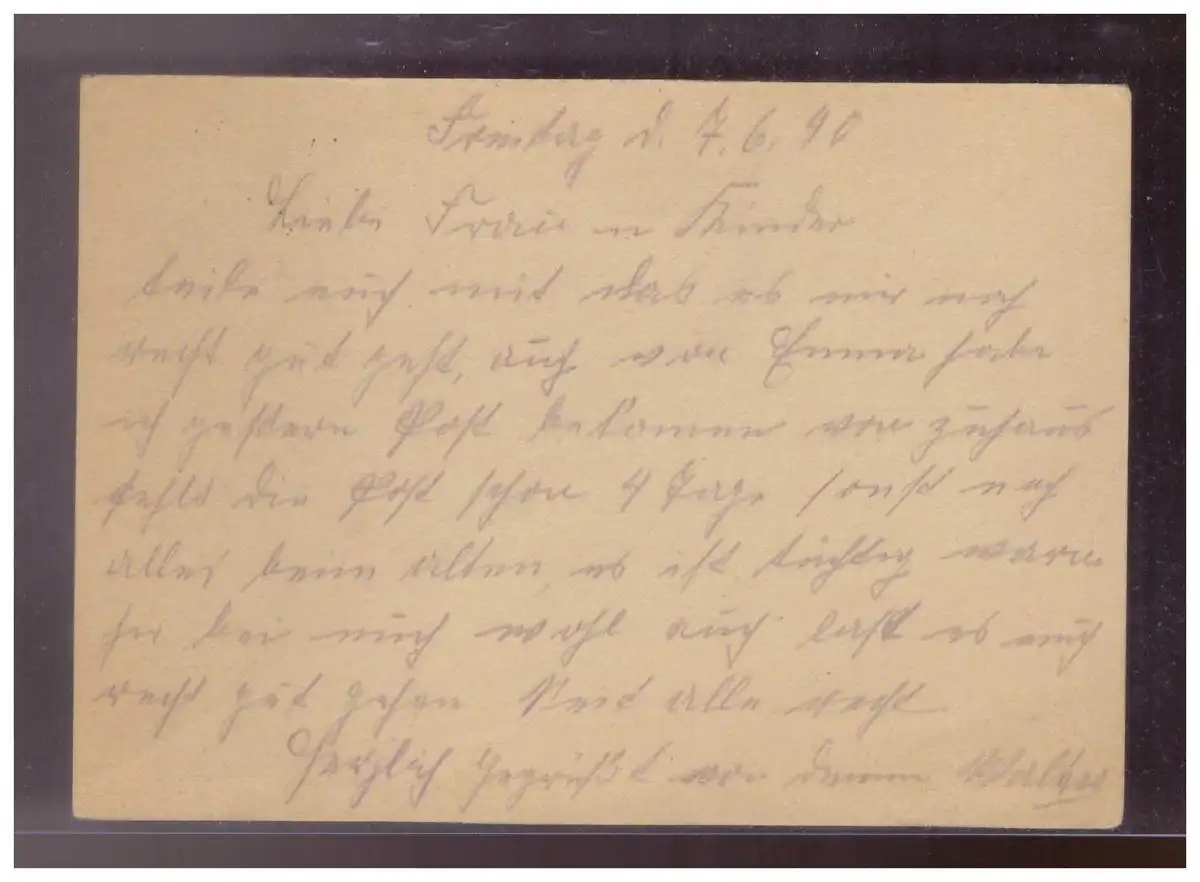 Freitag d. 7.6.40
Liebe Frau u Kinder
teile euch mit das es mir noch
recht gut geht, auch von Emma habe
ich gestern Post bekomen von zuhaus
fehlt die Post schon 4 Tage sonst noch
alles beim alten, es ist tüchtig warm
hir bei euch wohl auch last es euch
recht gut gehen Seit alle recht
herzlich gegrüßt von deinem Walter